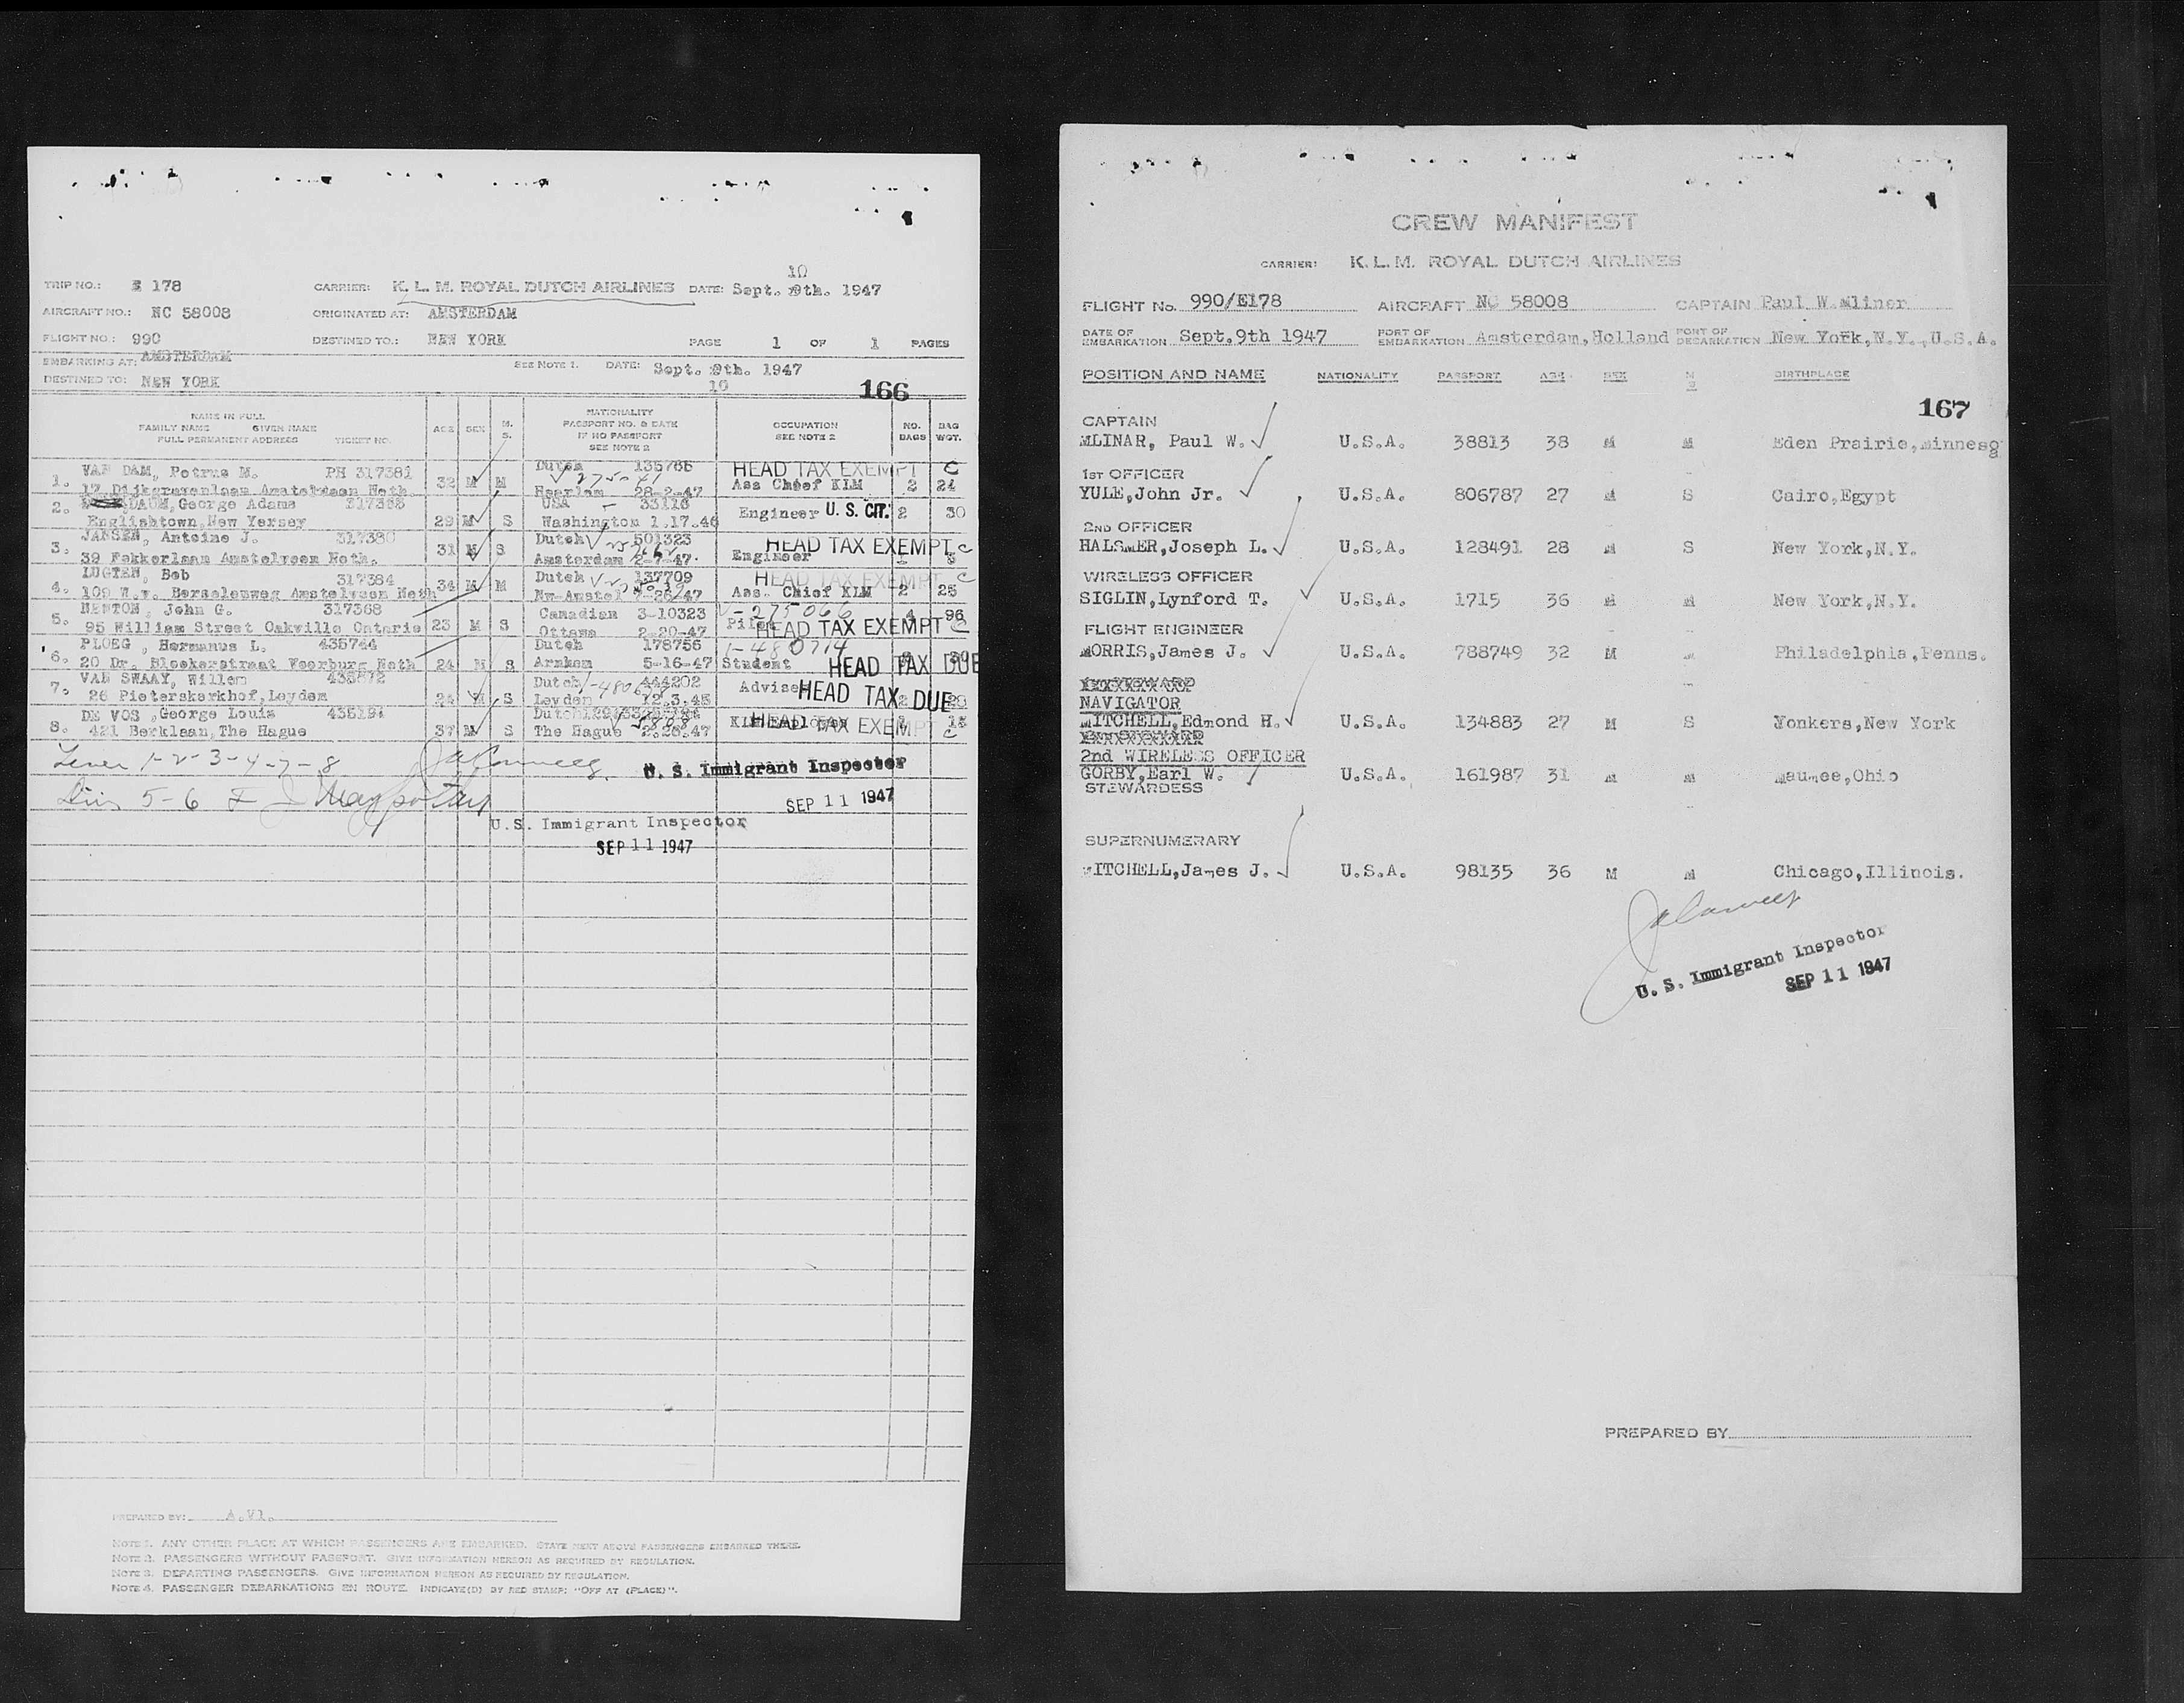 10
TRIP NO.: E 178 CARRIER: K. L. M. ROYAL DUTCH AIRLINES DATE: Sept. 9th. 1947
AIRCRAFT NO.: NC 58008 ORIGINATED AT: AMSTERDAM
FLIGHT NO.: 990 DESTINED TO: NEW YORK PAGE 1 OF 1 PAGES
EMBARKING AT: AMSTERDAM SEE NOTE 1. DATE: Sept. 9th. 1947
DESTINED TO: NEW YORK 10 166
NAME IN FULL
FAMILY NAME GIVEN NAME
FULL PERMANENT ADDRESS TICKET NO.
AGE SEX M. S.
NATIONALITY
PASSPORT NO. & DATE
IF NO PASSPORT
SEE NOTE 2
OCCUPATION
SEE NOTE 2
NO. BAGS
BAG WGT.
1. VAN DAM, Petrus M. PH 317381 32 M M Dutch 135766 HEAD TAX EXEMPT C
17 Dijkgravenlaan Amstelveen Neth. Haarlem 28-2-47 Ass Chief KLM 2 24
2. DAUM, George Adams 317368 USA 33116
Englishtown, New Yersey 29 M S Washington 1.17.46 Engineer U. S. CIT. 2 30
3. JANSEN, Antoine J. 317380 31 M S Dutch 501323 HEAD TAX EXEMPT C
39 Fokkerlaan Amstelveen Neth. Amsterdam 2-7-47. Engineer
4. LUGTEN, Bob 317384 34 M M Dutch 137709 HEAD TAX EXEMPT C
109 W.v. Borselenweg Amstelveen Neth Nw-Amstel 7-26-47 Ass. Chief KLM 2 25
5. NEWTON, John G. 317368 Canadian 3-10323 V-275066 4 96
95 William Street Oakville Ontario 23 M S Ottawa 2-20-47 Pilot HEAD TAX EXEMPT C
6. PLOEG, Hermanus L. 435744 Dutch 178756 1-480714
20 Dr. Bloekerstraat Voorburg Neth 24 M S Arnhem 5-16-47 Student HEAD TAX DUE
7. VAN SWAAY, Willem 435872 Dutch 444202 Adviser HEAD TAX DUE
26 Pieterskerkhof, Leyden 24 M S Leyden 12.3.45 2
8. DE VOS, George Louis 435191 Dutch
421 Berklaan, The Hague 37 M S The Hague 2.26.47 KLM Employee HEAD TAX EXEMPT C
1-2-3-4-7-8 U. S. Immigrant Inspector
5-6 SEP 11 1947
U.S. Immigrant Inspector
SEP 11 1947
PREPARED BY: A.Vl.
NOTE 1. ANY OTHER PLACE AT WHICH PASSENGERS ARE EMBARKED. STATE NEXT ABOVE PASSENGERS EMBARKED THERE.
NOTE 2. PASSENGERS WITHOUT PASSPORT. GIVE INFORMATION HEREON AS REQUIRED BY REGULATION.
NOTE 3. DEPARTING PASSENGERS. GIVE INFORMATION HEREON AS REQUIRED BY REGULATION.
NOTE 4. PASSENGER DEBARKATIONS EN ROUTE. INDICATE(D) BY RED STAMP: "OFF AT (PLACE)".
CREW MANIFEST
CARRIER: K. L. M. ROYAL DUTCH AIRLINES
FLIGHT No. 990/E178 AIRCRAFT NC 58008 CAPTAIN Paul W.Mlinar
DATE OF EMBARKATION Sept.9th 1947 PORT OF EMBARKATION Amsterdam,Holland PORT OF DEBARKATION New York,N.Y.,U.S.A.
POSITION AND NAME NATIONALITY PASSPORT AGE SEX M S BIRTHPLACE
167
CAPTAIN
MLINAR, Paul W. U.S.A. 38813 38 M M Eden Prairie,Minnes
1ST OFFICER
YULE,John Jr. U.S.A. 806787 27 M S Cairo,Egypt
2ND OFFICER
HALSMER,Joseph L. U.S.A. 128491 28 M S New York,N.Y.
WIRELESS OFFICER
SIGLIN,Lynford T. U.S.A. 1715 36 M M New York,N.Y.
FLIGHT ENGINEER
MORRIS,James J. U.S.A. 788749 32 M M Philadelphia,Penns.
NAVIGATOR
MITCHELL,Edmond H. U.S.A. 134883 27 M S Yonkers,New York
2nd WIRELESS OFFICER
GORBY,Earl W. U.S.A. 161987 31 M M Maumee,Ohio
STEWARDESS
SUPERNUMERARY
MITCHELL,James J. U.S.A. 98135 36 M M Chicago,Illinois.
U. S. Immigrant Inspector
SEP 11 1947
PREPARED BY